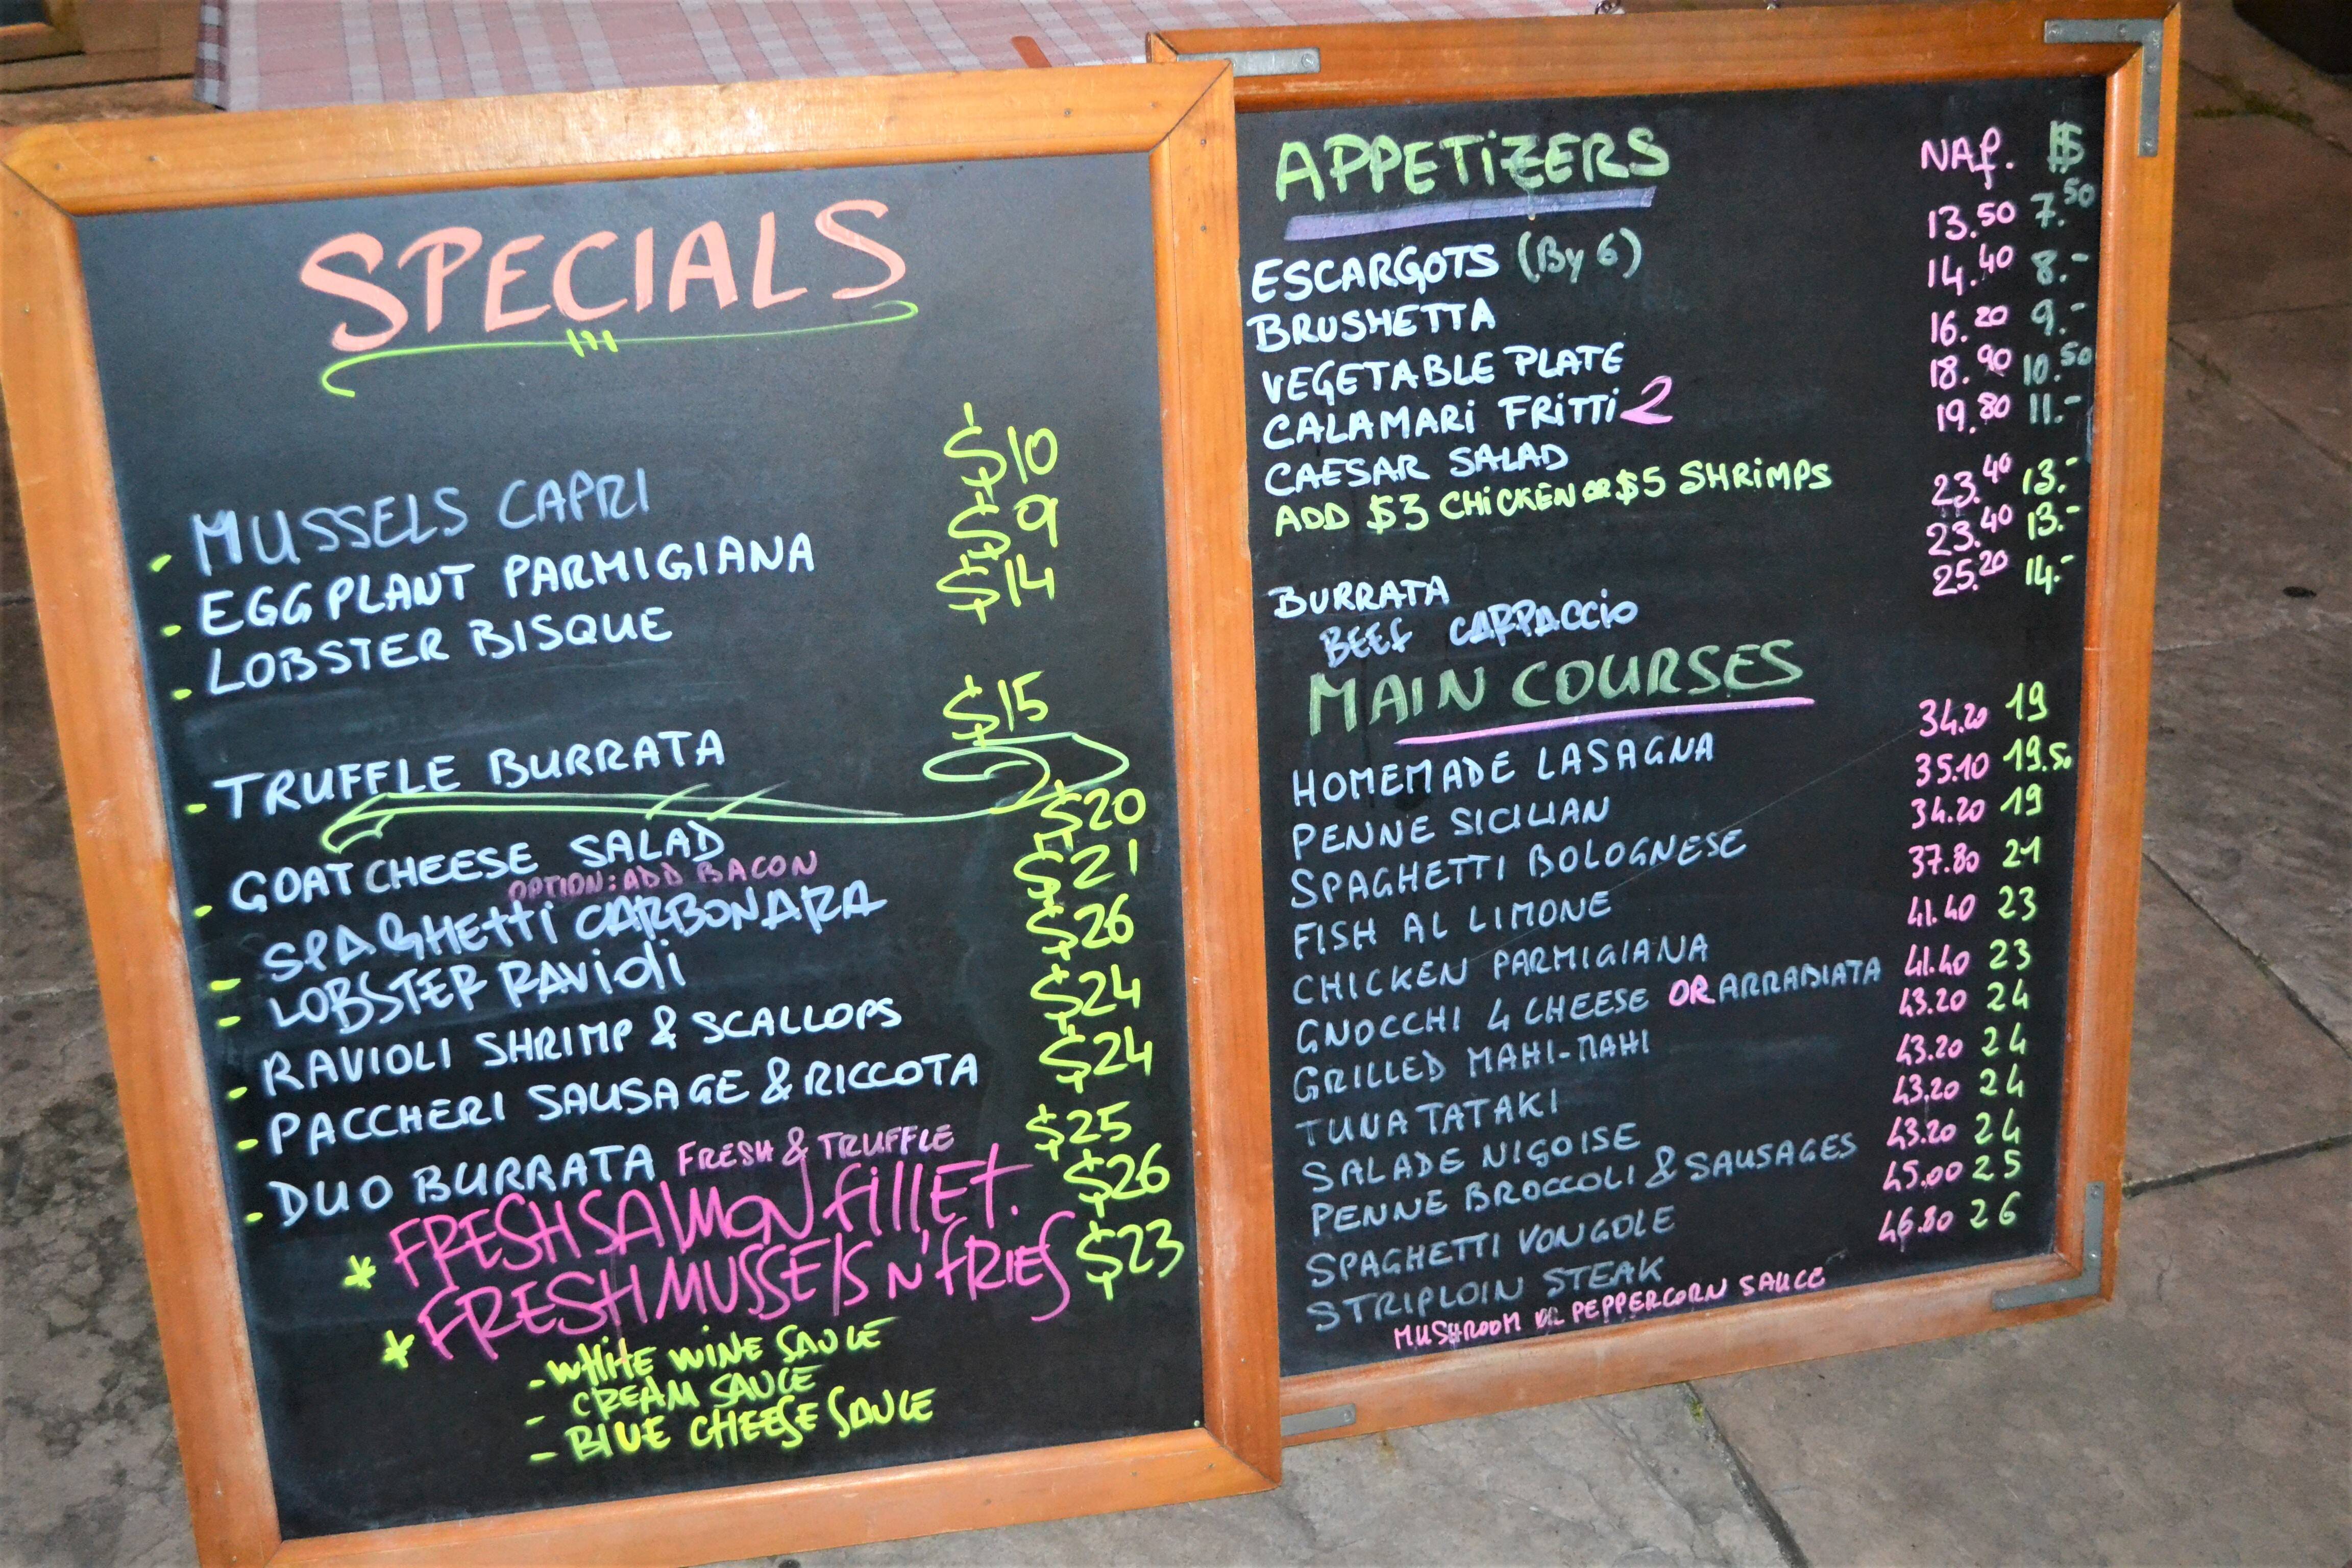 SPECIALS
- MUSSELS CAPRI $10
- EGGPLANT PARMIGIANA $9
- LOBSTER BISQUE $14
- TRUFFLE BURRATA $15
- GOAT CHEESE SALAD $20
OPTION: ADD BACON
- SPAGHETTI CARBONARA $21
- LOBSTER RAVIOLI $26
- RAVIOLI SHRIMP & SCALLOPS $24
- PACCHERI SAUSAGE & RICCOTA $24
- DUO BURRATA FRESH & TRUFFLE $25
* FRESH SALMON FILLET. $26
* FRESH MUSSELS N' FRIES $23
- WHITE WINE SAUCE
- CREAM SAUCE
- BLUE CHEESE SAUCE
APPETIZERS NAf. $
ESCARGOTS (By 6) 13.50 7.50
BRUSHETTA 14.40 8.-
VEGETABLE PLATE 16.20 9.-
CALAMARI FRITTI 2 18.90 10.50
CAESAR SALAD 19.80 11.-
ADD $3 CHICKEN OR $5 SHRIMPS 23.40 13.-
BURRATA 23.40 13.-
BEEF CARPACCIO 25.20 14.-
MAIN COURSES
HOMEMADE LASAGNA 34.20 19
PENNE SICILIAN 35.10 19.50
SPAGHETTI BOLOGNESE 34.20 19
FISH AL LIMONE 37.80 21
CHICKEN PARMIGIANA 41.40 23
GNOCCHI 4 CHEESE OR ARRABIATA 41.40 23
GRILLED MAHI-MAHI 43.20 24
TUNA TATAKI 43.20 24
SALADE NIGOISE 43.20 24
PENNE BROCCOLI & SAUSAGES 43.20 24
SPAGHETTI VONGOLE 45.00 25
STRIPLOIN STEAK 46.80 26
MUSHROOM OR PEPPERCORN SAUCE